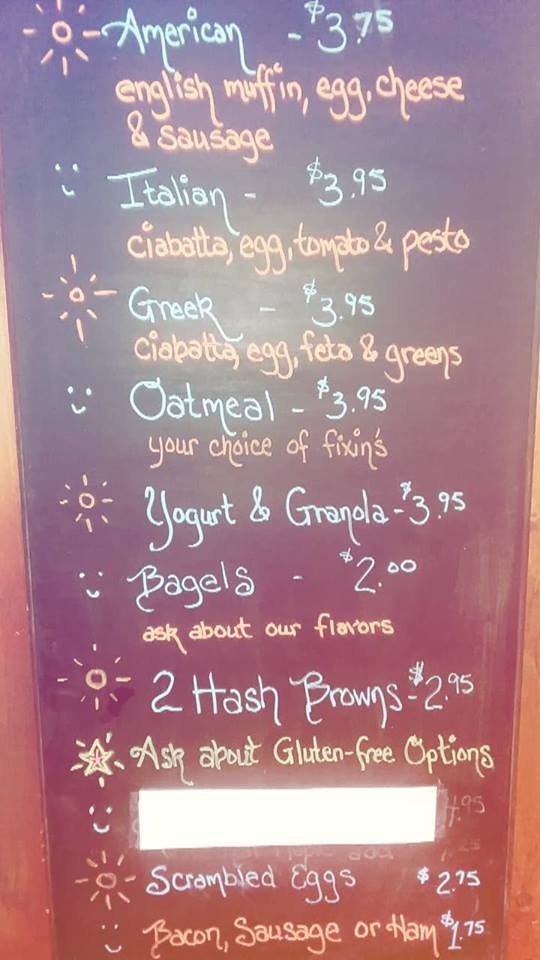 American - $3.75
english muffin, egg, cheese
& sausage
Italian - $3.95
ciabatta, egg, tomato & pesto
Greek - $3.95
ciabatta, egg, feta & greens
Oatmeal - $3.95
your choice of fixin's
Yogurt & Granola - $3.95
Bagels - $2.00
ask about our flavors
2 Hash Browns - $2.95
Ask about Gluten-free Options
4.95
Scrambled Eggs $2.75
Bacon, Sausage or Ham $1.75